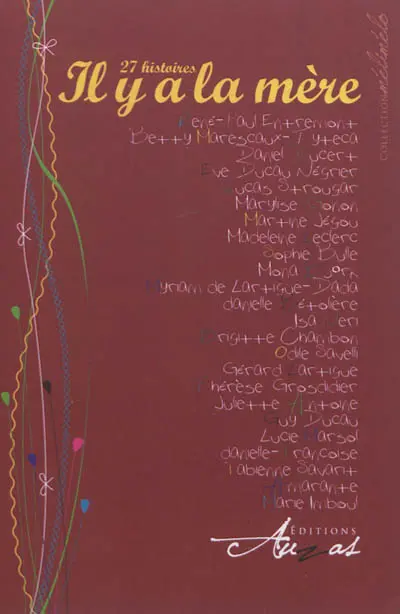 27 histoires
Il y a la mère
COLLECTION mélimélo
René-Paul Entremont
Betty Marescaux-Tyteca
Daniel
Eve Ducau Négrier
Lucas Strougar
Marylise
Martine Jégou
Madeleine Leclerc
Sophie Bulle
Mona
Myriam de Lartigue-Dada
danielle
Isa
Brigitte Chambon
Odile Savelli
Gérard Lartigue
Thérèse Grosdidier
Juliette Antoine
Guy Ducau
Lucie Marsol
danielle-Françoise
Fabienne Savarit
Amarante
Marie Imboul
ÉDITIONS
Auzas